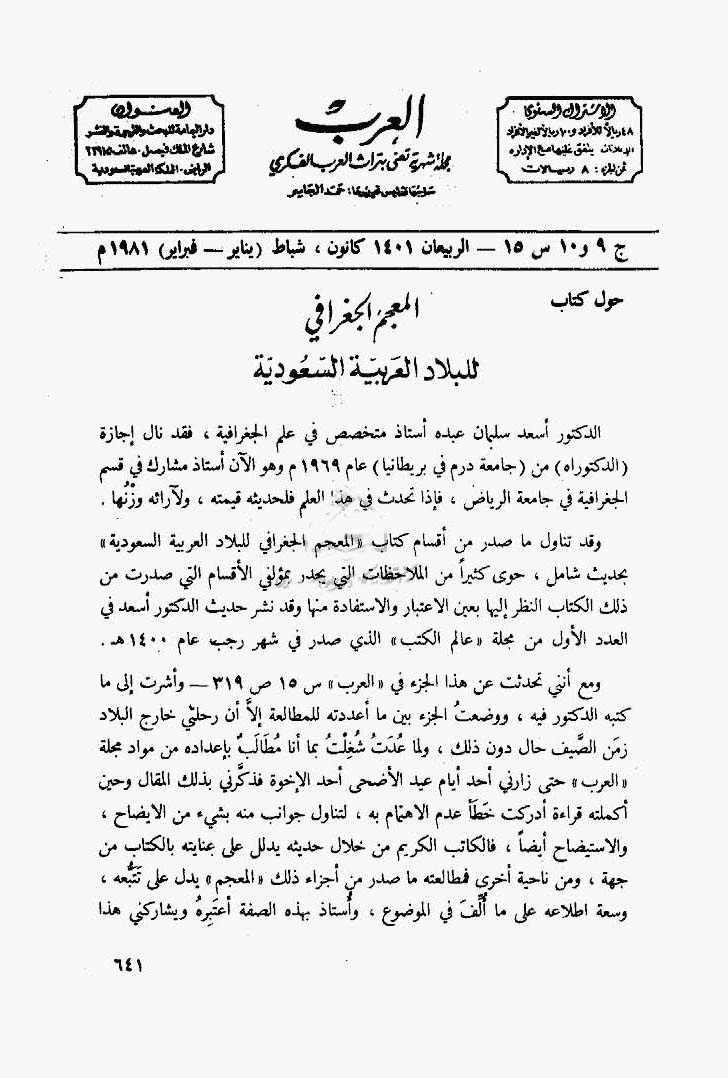 الاشتراك السنوي
٤٨ ريالاً للأفراد و١٠٠ ريالاً لغير الأفراد
الإعلانات: يتفق عليها مع الإدارة
ثمن الجزء: ٨ ريالات
العرب
مجلة شهرية تعنى بتراث العرب الفكري
صاحبها ورئيس تحريرها: حمد الجاسر
العنوان
دار اليمامة للبحث والترجمة والنشر
شارع الملك فيصل. هاتف:
الرياض. المملكة العربية السعودية
ج ٩ و١٠ س ١٥ — الربيعان ١٤٠١ كانون ، شباط (يناير — فبراير) ١٩٨١ م
حول كتاب
المعجم الجغرافي
للبلاد العربيّة السّعُوديّة
الدكتور أسعد سليمان عبده أستاذ متخصص في علم الجغرافية ، فقد نال إجازة
(الدكتوراه) من (جامعة درم في بريطانيا) عام ١٩٦٩ م وهو الآن أستاذ مشارك في قسم
الجغرافية في جامعة الرياض ، فإذا تحدث في هذا العلم فلحديثه قيمته ، ولآرائه وزْنُها .
وقد تناول ما صدر من أقسام كتاب «المعجم الجغرافي للبلاد العربية السعودية»
بحديث شامل ، حوى كثيراً من الملاحظات التي يجدر بمؤلفي الأقسام التي صدرت من
ذلك الكتاب النظر إليها بعين الاعتبار والاستفادة منها وقد نشر حديث الدكتور أسعد في
العدد الأول من مجلة «عالم الكتب» الذي صدر في شهر رجب عام ١٤٠٠ هـ .
ومع أنني تحدثت عن هذا الجزء في «العرب» س ١٥ ص ٣١٩ — وأشرت إلى ما
كتبه الدكتور فيه ، ووضعتُ الجزء بين ما أعددته للمطالعة إلاَّ أن رحلتي خارج البلاد
زمَن الصَّيف حال دون ذلك ، ولما عُدَتُ شُغِلْتُ بما أنا مُطَالَبٌ بإعداده من مواد مجلة
«العرب» حتى زارني أحد أيام عيد الأضحى أحد الإخوة فذكَّرني بذلك المقال وحين
أكملته قراءة أدركت خَطَأَ عدم الاهتمام به ، لتناول جوانب منه بشيء من الايضاح ،
والاستيضاح أيضاً ، فالكاتب الكريم من خلال حديثه يدلل على عنايته بالكتاب من
جهة ، ومن ناحية أخرى فمطالعته ما صدر من أجزاء ذلك «المعجم» يدل على تَتَبُّعه ،
وسعة اطلاعه على ما أُلِّفَ في الموضوع ، وأُستاذ بهذه الصفة أعتَبِرهُ ويشاركني هذا
٦٤١